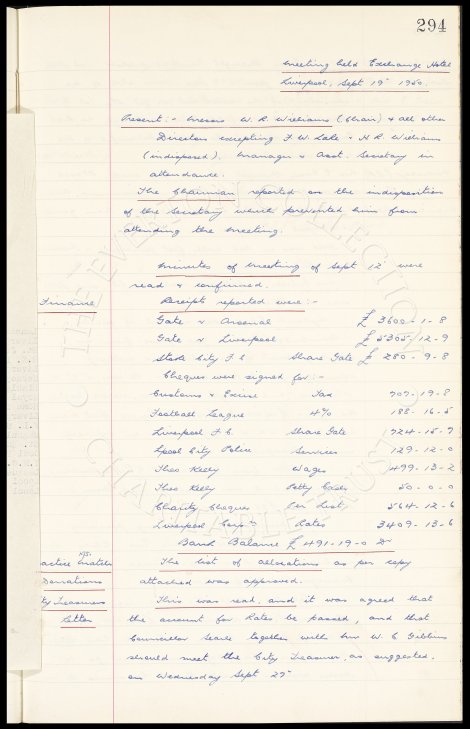 294
Meeting held Exchange Hotel
Liverpool, Sept 19th 1950.
Present:- Messrs W. R. Williams (Chair) & all other
Directors excepting F. W. Lake & H. R. Williams
(indisposed). Manager & Asst. Secretary in
attendance.
The Chairman reported on the indisposition
of the Secretary which prevented him from
attending the meeting.
Minutes of meeting of Sept 12th were
read & confirmed.
Finance
Receipt reported were:-
Gate v Arsenal £ 3600-1-8
Gate v Liverpool £ 5305-12-9
Stoke City F C Share Gate £ 280-9-8
Cheques were signed for:-
Customs & Excise Tax 707-19-8
Football League 4% 188-16-5
Liverpool F. C. Share Gate 1724-15-7
Lpool City Police Services 129-12-0
Theo Kelly Wages 499-13-2
Theo Kelly Petty Cash 50-0-0
Charity Cheques Per List 564-12-6
Liverpool Corpn Rates 3409-13-6
Bank Balance £ 491-19-0 Dr
Donations
The list of donations as per copy
attached was approved.
ty Treasurers
Letter
This was read, and it was agreed that
the account for Rates be passed, and that
Councillor Searle together with Mr W. C. Gibbins
should meet the City Treasurer, as suggested,
on Wednesday Sept 27th
THE EVERTON COLLECTION
CHARITABLE TRUST